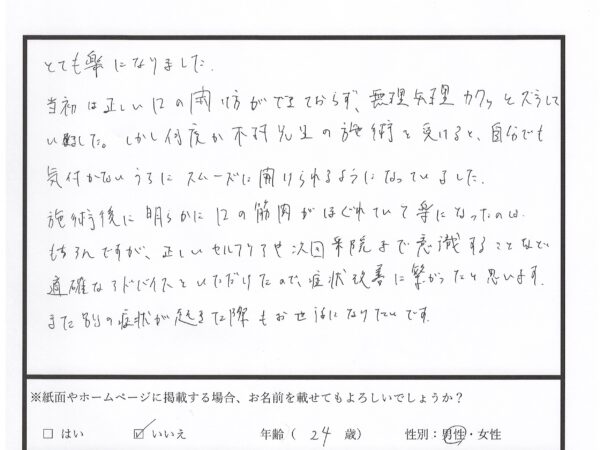 とても楽になりました。
当初は正しい口の開け方ができておらず、無理矢理カクッとズラして
いました。しかし何度か木村先生の施術を受けると、自分でも
気付かないうちにスムーズに開けられるようになっていました。
施術後に明らかに口の筋肉がほぐれていて楽になったのは
もちろんですが、正しいセルフケアや次回来院まで意識することなど
適確なアドバイスもいただけたので、症状改善に繋がったと思います。
また別の症状が起きた際もお世話になりたいです。
※紙面やホームページに掲載する場合、お名前を載せてもよろしいでしょうか？
□ はい ☑ いいえ 年齢（ 24 歳） 性別：男性・女性